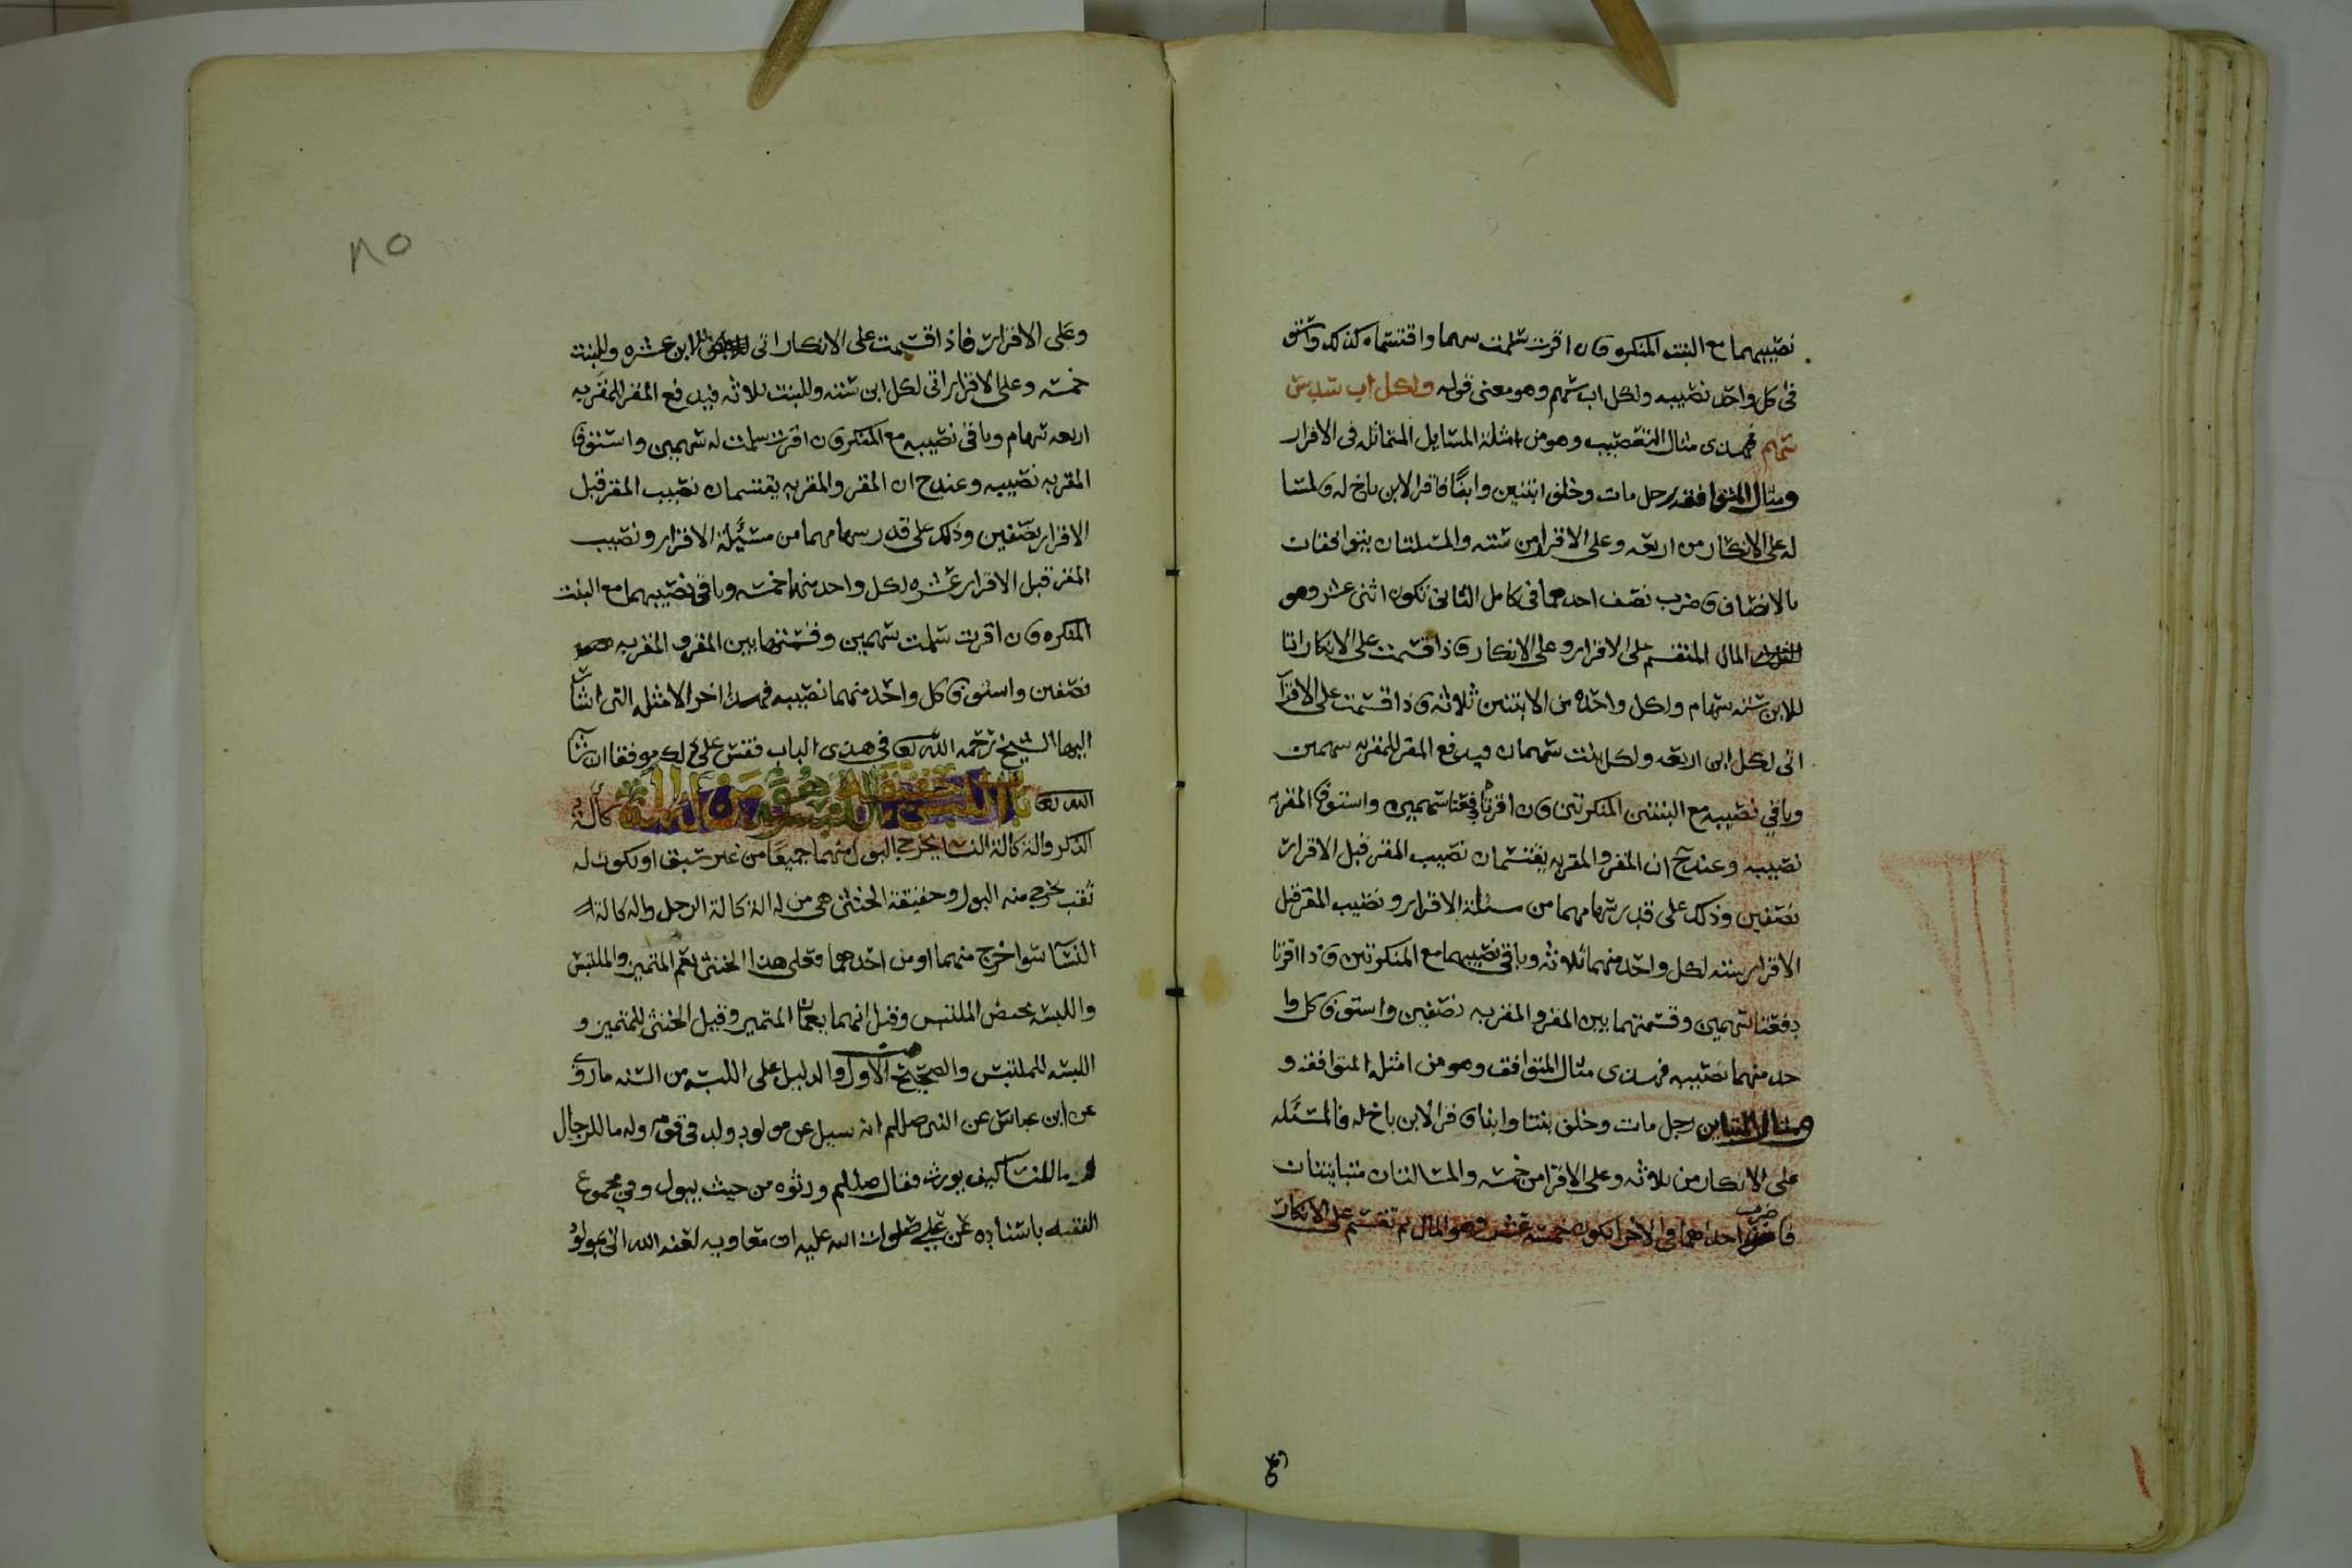 نصيبهما مع البنت المنكره فان اقرت سلمت سهما واقتسماه كذلك واستوفى
كل واحد نصيبه ولكل اب سهم وهو معنى قوله ولكل اب سدس
سهم فهذى مثال التعصيب وهو من امثلة المسايل المتماثله فى الاقرار
ومثال المتوافقه رجل مات وخلف ابنتين وابنًا فاقر الابن باخ له فالمسا
له على الانكار من اربعه وعلى الاقرار من سته والمسلتان يتوافقان
بالانصاف فاضرب نصف احدهما فى كامل الثانى تكون اثنى عشر وهو
المال المنقسم على الاقرار وعلى الانكار فاذا قسمت على الانكار اتا
للابن سته سهام ولكل واحده من الابنتين ثلاثه فاذا قسمت على الاقرا
اتى لكل ابن اربعه ولكل بنت سهمان فيدفع المقر للمقر به سهمين
وباقي نصيبه مع البنتين المنكرتين فان اقرتا دفعتا سهمين واستوفا المقر به
نصيبه وعند ح ان المقر والمقر به يقتسمان نصيب المقر قبل الاقرار
نصفين وذلك على قدر سهامهما من مسئلة الاقرار ونصيب المقر قبل
الاقرار سته لكل واحد منهما ثلاثه وباقى نصيبهما مع المنكرتين فاذا اقرتا
دفعتا سهمين وقسمتهما بين المقر والمقر به نصفين واستوفا كل وا
حد منهما نصيبه فهذى مثال المتوافقه وهو من امثلة المتوافقه و
مثال المتباين رجل مات وخلف بنتا وابنا فاقر الابن باخ له فالمسئله
على الانكار من ثلاثه وعلى الاقرار من خمسه والمسالتان متباينتان
فاضرب احداهما فى الاخرا تكون خمسة عشر وهو المال ثم تقسم على الانكار
وعلى
وعلى الاقرار فاذا قسمت على الانكار اتى للابن عشره وللبنت
خمسه وعلى الاقرار اتى لكل ابن سته وللبنت ثلاثه فيدفع المقر للمقر به
اربعه سهام وباقى نصيبه مع المنكره فان اقرت سلمت له سهمين واستوفا
المقر به نصيبه وعند ح ان المقر والمقر به يقتسمان نصيب المقر قبل
الاقرار نصفين وذلك على قدر سهامهما من مسئلة الاقرار ونصيب
المقر قبل الاقرار عشره لكل واحد منهما خمسه وباقى نصيبهما مع البنت
المنكره فان اقرت سلمت سهمين وقسمتهما بين المقر والمقر به
نصفين واستوفا كل واحد منهما نصيبه فهذا اخر الامثله التى اشار
اليها الشيخ رحمه الله تعا فى هذى الباب فقس على ذلك موفقا ان شا
الله تعا باب حقيقة هو من له آلة كآلة
الذكر والة كالة النسا يخرج البول منهما جميعًا من غير سبق او يكون له
ثقب يخرج منه البول وحقيقة الخنثى هى من له الة كالة الرجل واله كالة
النسا سوا خرج منهما او من احدهما فعلى هذا الخنثى يعم المتميز والملتبس
واللبسه محض الملتبس وقيل انهما يعمان المتميز وقيل الخنثى للمتميز و
اللبسه للملتبس والصحيح الاول والدليل على اللبسه من السنه ماروى
عن ابن عباس عن النبى صللم انه سيل عن مولود ولد فى قومه وله ما للرجال
وما للنسا كيف يورث فقال صللم ورثوه من حيث يبول وفي مجموع
الفقيه باسناده عن علي صلوات الله عليه ان معاويه لعنه الله اتى بمولود
٨٥